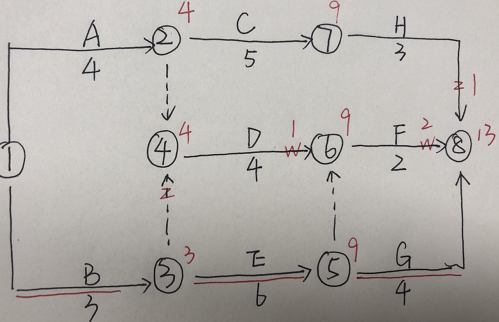 4 9
A C H
② ⑦
4 5 3
1
4 1 9 2
① ④ D ⑥ F ⑧ 13
4 2
3 9
B ③ E ⑤ G
3 6 4